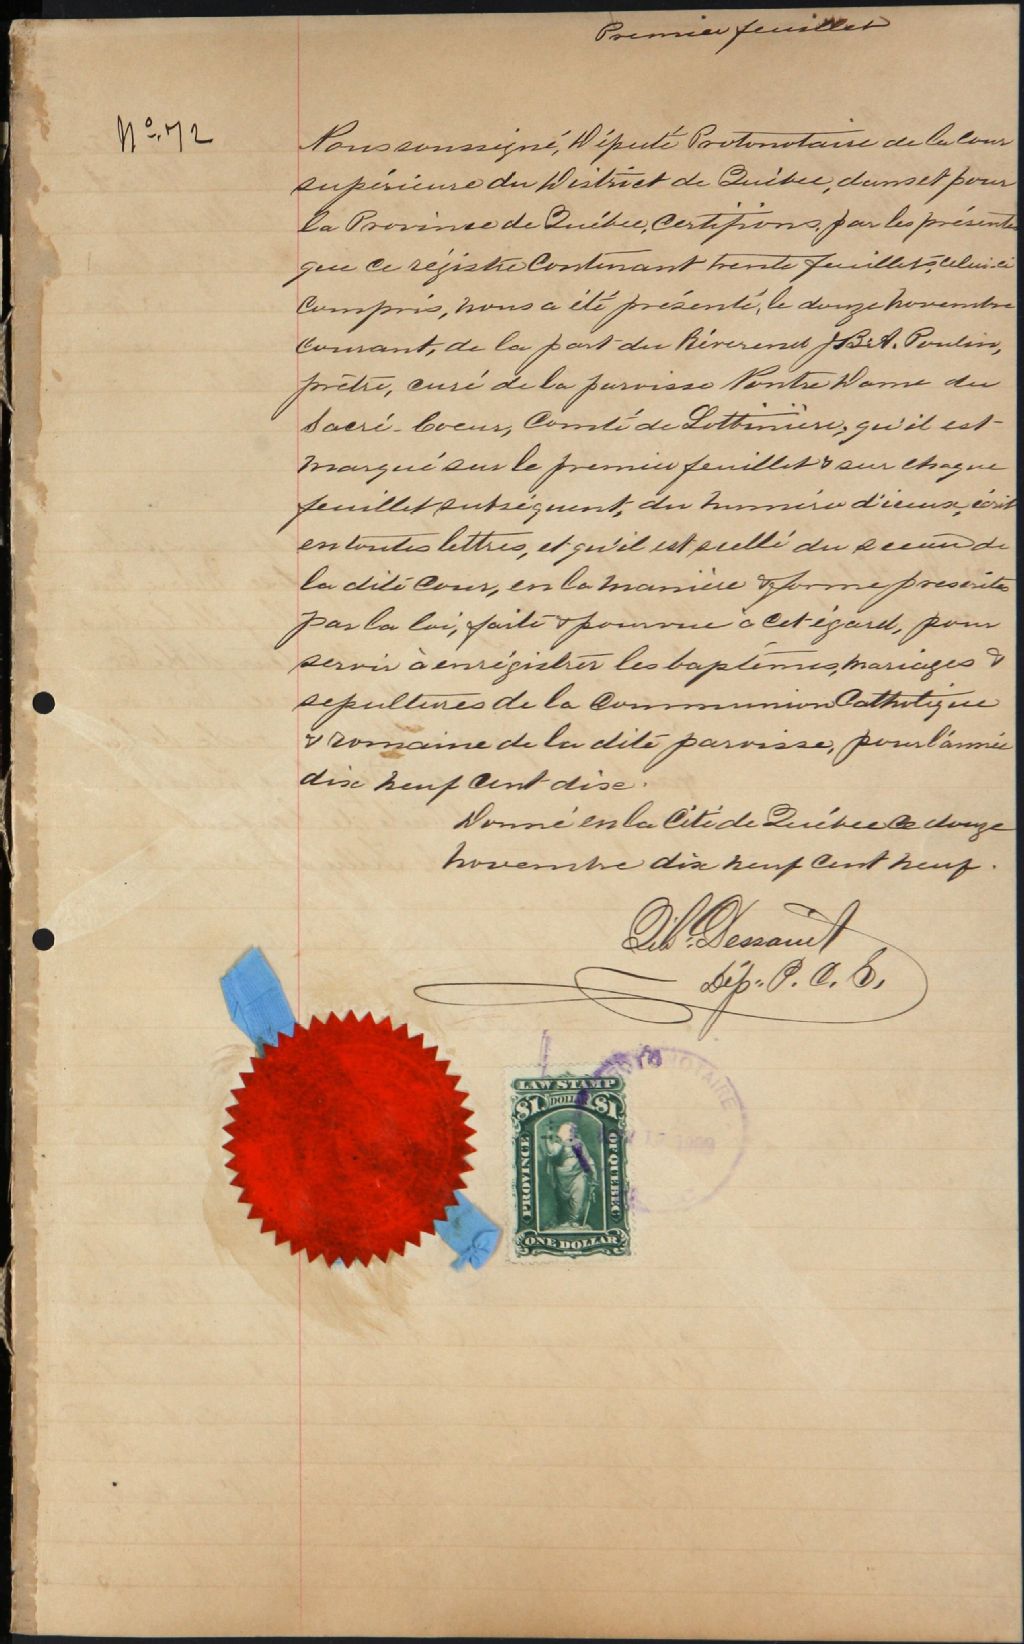 Premier feuillet
No. 72
Nous soussigné, Député Protonotaire de la Cour
supérieure du District de Québec, dans et pour
la Province de Québec, Certifions, par les présentes
que ce régistre Contenant trente feuillets, celui-ci
Compris, nous a été présenté, le douze novembre
Courant, de la part du Réverend J.B.A. Poulin,
prêtre, curé de la paroisse Nontre Dame du
Sacré-Coeur, Comté de Lotbinière, qu'il est
marqué sur le premier feuillet & sur chaque
feuillet subséquent, du numéro d'iceux, écrit
en toutes lettres, et qu'il est scellé du sceau de
la dite Cour, en la manière & forme prescrites
par la loi, faite & pourvue à cet égard, pour
servir à enrégistrer les baptêmes, mariages &
sepultures de la Communion Catholique
& romaine de la dite paroisse, pour l'année
dix neuf Cent dix.
Donné en la Cité de Québec Ce douze
novembre dix neuf Cent neuf.
Dessault
Dép. P. C. S.
LAW STAMP
$1 DOLLAR $1
PROVINCE OF QUEBEC
ONE DOLLAR